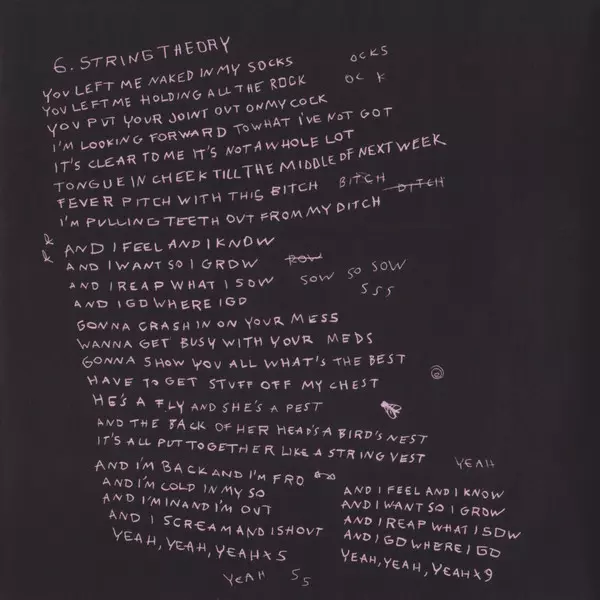 6. STRING THEORY
YOU LEFT ME NAKED IN MY SOCKS OCKS
YOU LEFT ME HOLDING ALL THE ROCK OC K
YOU PUT YOUR JOINT OUT ON MY COCK
I'M LOOKING FORWARD TO WHAT I'VE NOT GOT
IT'S CLEAR TO ME IT'S NOT A WHOLE LOT
TONGUE IN CHEEK TILL THE MIDDLE OF NEXT WEEK
FEVER PITCH WITH THIS BITCH BITCH DITCH
I'M PULLING TEETH OUT FROM MY DITCH
AND I FEEL AND I KNOW
AND I WANT SO I GROW ROW
AND I REAP WHAT I SOW SOW SO SOW
AND I GO WHERE I GO SSS
GONNA CRASH IN ON YOUR MESS
WANNA GET BUSY WITH YOUR MEDS
GONNA SHOW YOU ALL WHAT'S THE BEST
HAVE TO GET STUFF OFF MY CHEST
HE'S A FLY AND SHE'S A PEST
AND THE BACK OF HER HEAD'S A BIRD'S NEST
IT'S ALL PUT TOGETHER LIKE A STRING VEST
YEAH
AND I'M BACK AND I'M FRO
AND I'M COLD IN MY SO
AND I'M IN AND I'M OUT
AND I SCREAM AND I SHOUT
YEAH, YEAH, YEAH x 5
YEAH 55
AND I FEEL AND I KNOW
AND I WANT SO I GROW
AND I REAP WHAT I SOW
AND I GO WHERE I GO
YEAH, YEAH, YEAH x 9